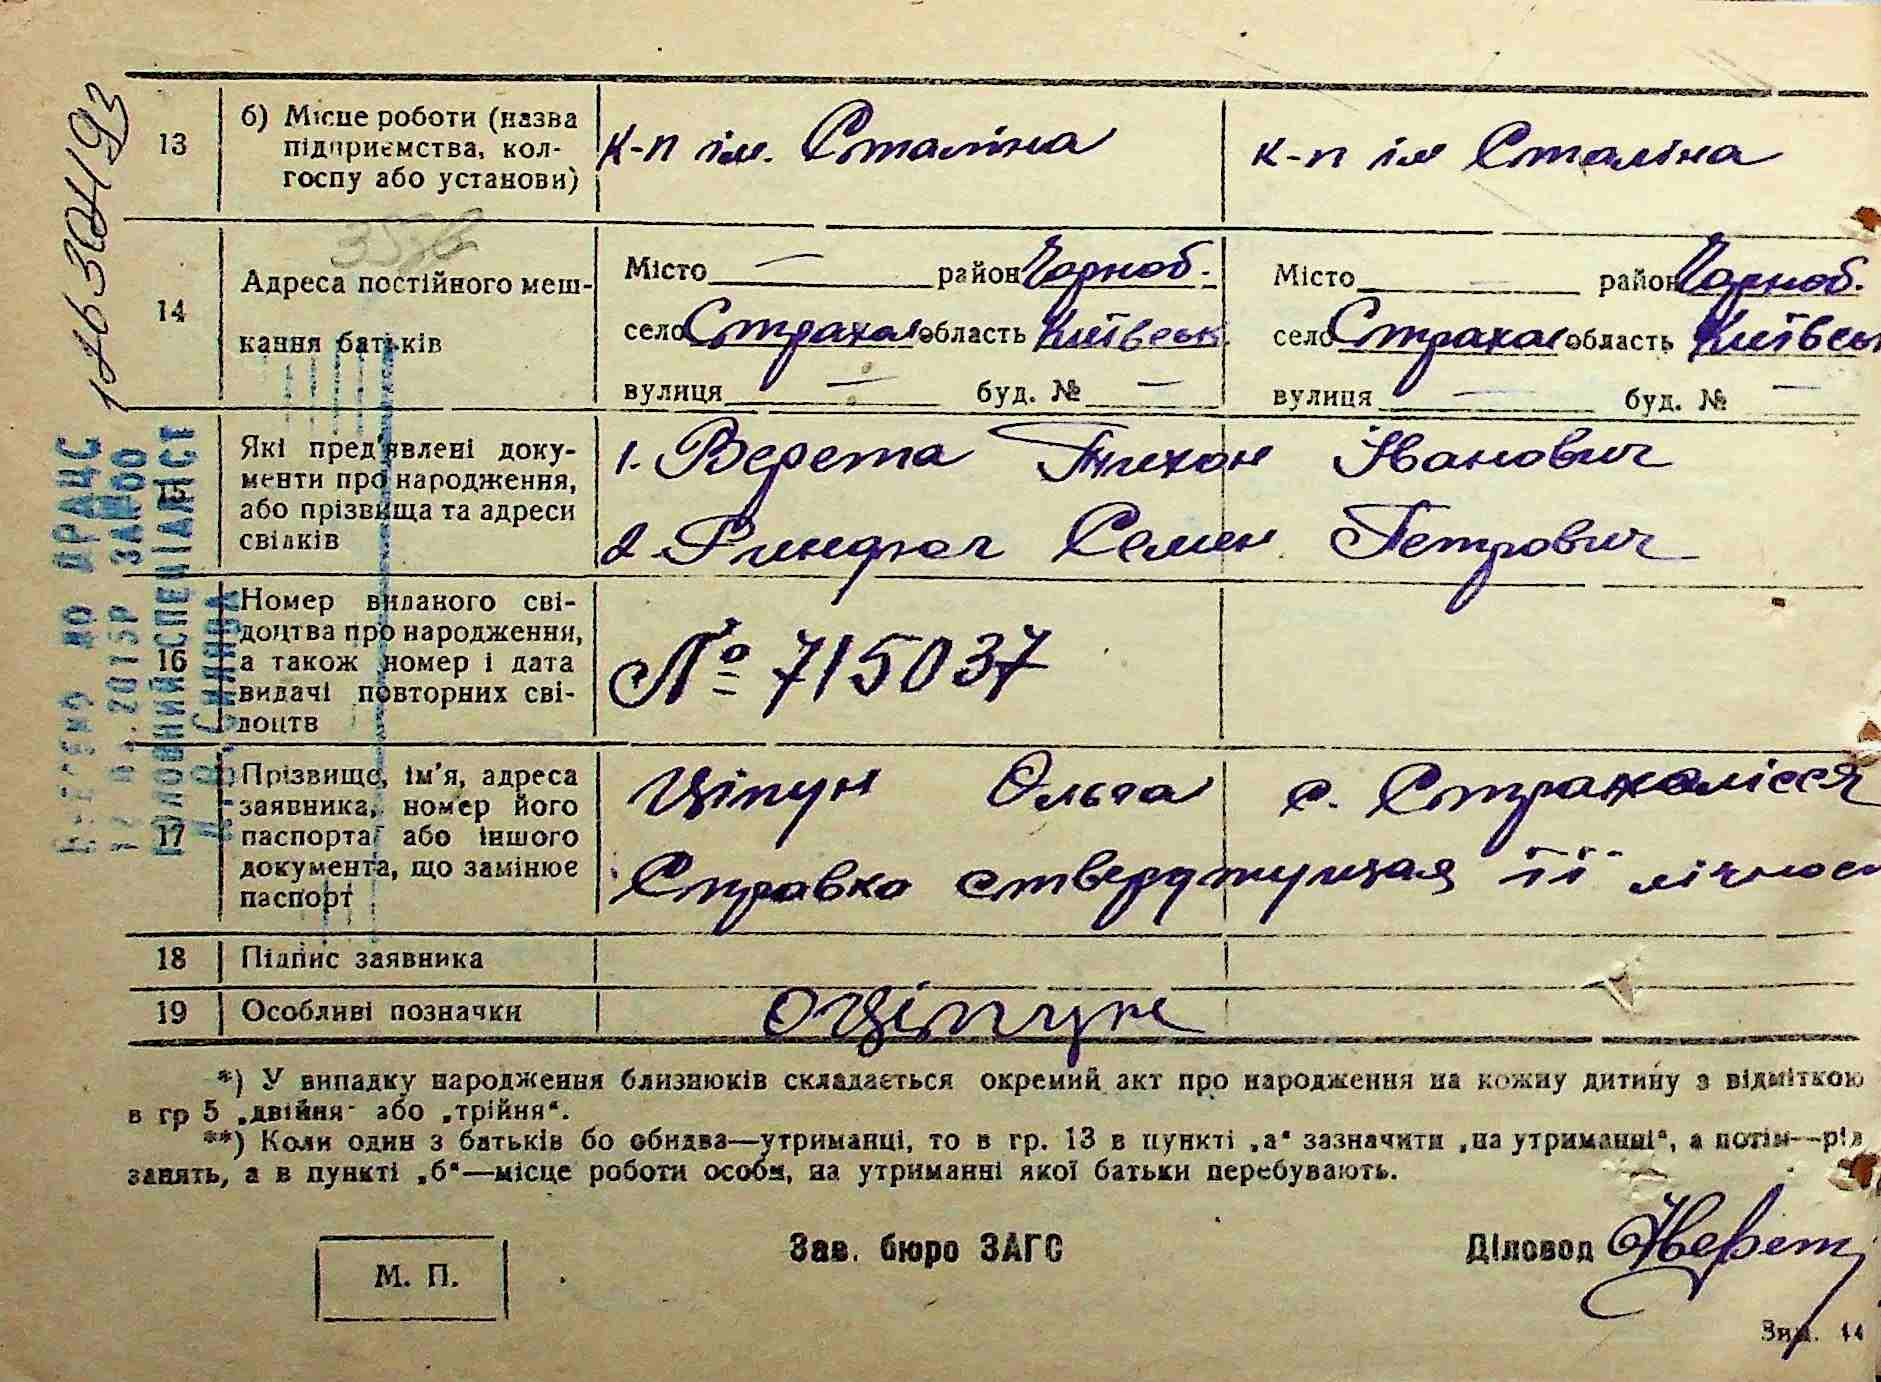 13
б) Місце роботи (назва
підприємства, кол-
госпу або установи)
к-п ім. Сталіна
к-п ім Сталіна
14
Адреса постійного меш-
кання батьків
Місто — район Чорноб.
село Страхол область Київськ.
вулиця — буд. № —
Місто — район Чорноб.
село Страхол область Київськ
вулиця — буд. № —
15
Які пред'явлені доку-
менти про народження,
або прізвища та адреси
свідків
1. Верета Тихон Іванович
2. Семен Петрович
16
Номер виданого сві-
доцтва про народження,
а також номер і дата
видачі повторних сві-
доцтв
№ 715037
17
Прізвище, ім'я, адреса
заявника, номер його
паспорта або іншого
документа, що замінює
паспорт
Ціпун Ольга с. Страхолісся
Справка стверджующая її лічност
18
Підпис заявника
19
Особливі позначки
ОЦіпун
*) У випадку народження близнюків складається окремий акт про народження на кожну дитину з відміткою
в гр 5 „двійня" або „трійня".
**) Коли один з батьків бо обидва—утриманці, то в гр. 13 в пункті „а" зазначити „на утриманні", а потім—рід
занять, а в пункті „б"—місце роботи особи, на утриманні якої батьки перебувають.
М. П.
Зав. бюро ЗАГС
Діловод
ДРАЦС
ГОЛОВНИЙ СПЕЦІАЛІСТ